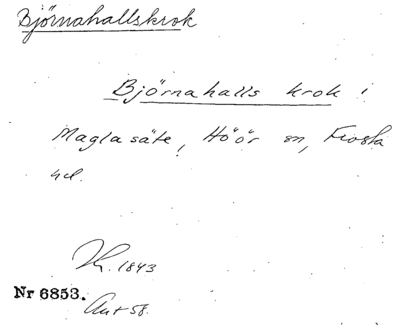 Björnahallskrok
Björnahalls krok i
Maglasäte, Höör sn, Frosta
hd.
1843
Nr 6853.
Ant 58.